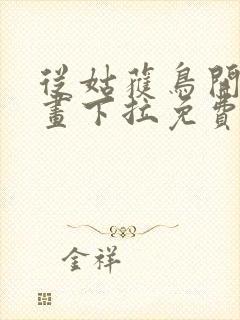 從姑蔬鳥開
畫下拉免費
金祥